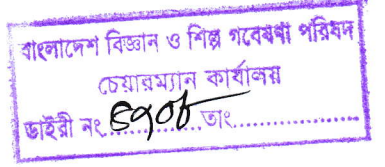 বাংলাদেশ বিজ্ঞান ও শিল্প গবেষণা পরিষদ
চেয়ারম্যান কার্যালয়
ডাইরী নং ৬৭০৮ তাং